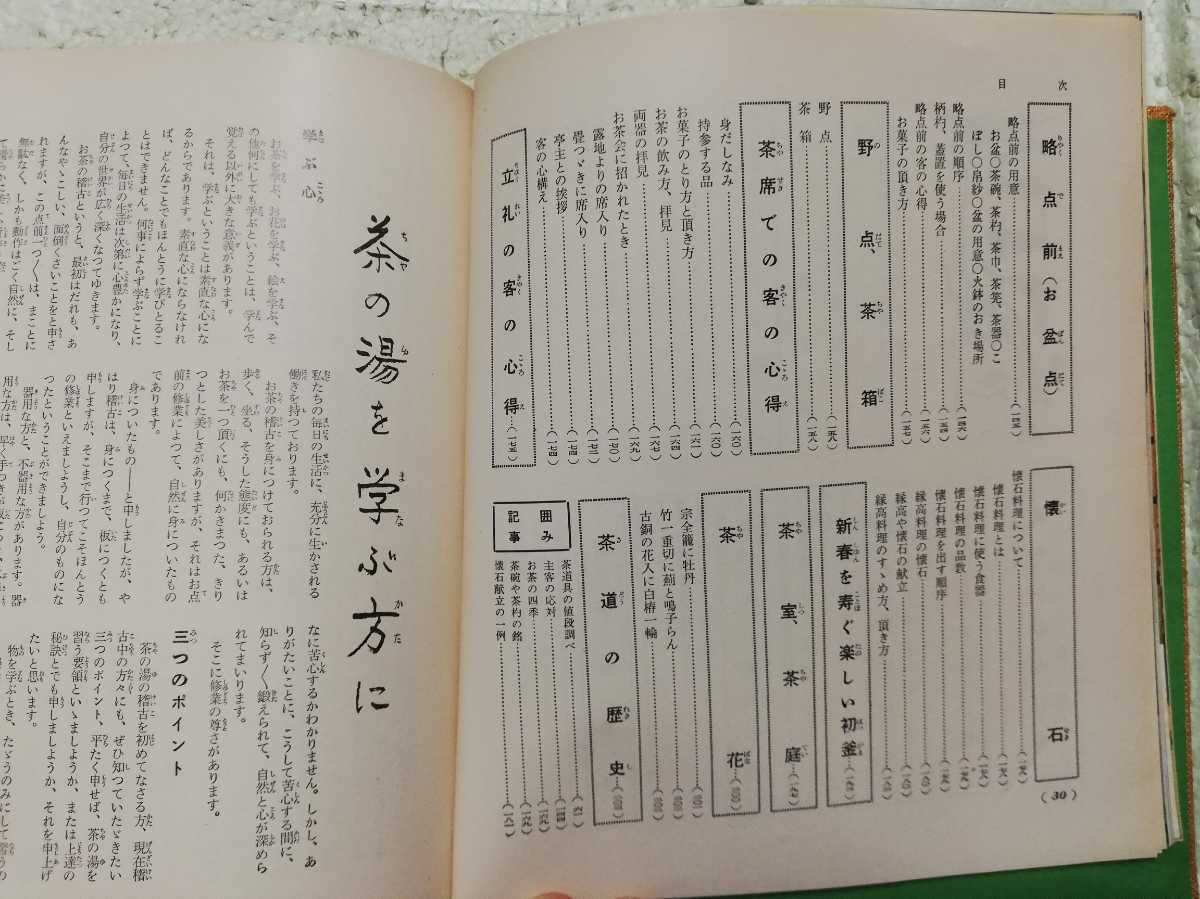 目次
略点前(お盆点)
略点前の用意
お盆〇茶碗、茶杓、茶巾、茶筅、茶器〇こ
ぼし〇帛紗〇盆の用意〇火鉢のおき場所
略点前の順序
柄杓、蓋置を使う場合
略点前の客の心得
お菓子の頂き方
野点、茶箱
野点
茶箱
茶席での客の心得
身だしなみ
持参する品
お菓子のとり方と頂き方
お茶の飲み方、拝見
両器の拝見
お茶会に招かれたとき
露地よりの席入り
畳つゞきに席入り
亭主との挨拶
客の心構え
立礼の客の心得
懐石
懐石料理について
懐石料理とは
懐石料理に使う食器
懐石料理の品数
懐石料理を出す順序
縁高料理の懐石
縁高や懐石の献立
縁高料理のすゝめ方、頂き方
新春を寿ぐ楽しい初釜
茶室、茶庭
茶花
宗全籠に牡丹
竹一重切に薊と鳴子らん
古銅の花入に白椿一輪
茶道の歴史
囲み記事
茶道具の値段調べ
主客の応対
お茶の四季
茶碗や茶杓の銘
懐石献立の一例
(30)
茶の湯を学ぶ方に
学ぶ心
お茶を学ぶ、お花を学ぶ、絵を学ぶ、そ
の他何にしても学ぶということは、学んで
覚える以外に大きな意義があります。
それは、学ぶということは素直な心にな
るからであります。素直な心にならなけれ
ば、どんなことでもほんとうに学びとるこ
とはできません。何事によらず学ぶことに
よつて、毎日の生活は次第に心豊かになり、
自分の世界が広く深くなつてゆきます。
お茶の稽古というと、最初はだれも、あ
んなやゝこしい、面倒くさいことをと申さ
れますが、この点前一つ〳〵は、まことに
無駄なく、しかも動作はごく自然に、そし
私たちの毎日の生活に、充分に生かされる
働きを持つております。
お茶の稽古を身につけておられる方は、
歩く、坐る、そうした態度にも、あるいは
お茶を一つ頂くにも、何かきまつた、きり
つとした美しさがありますが、それはお点
前の修業によつて、自然に身についたもの
であります。
身についたもの──と申しましたが、や
はり稽古は、身につくまで、板につくとも
申しますが、そこまで行つてこそほんとう
の修業といえましようし、自分のものにな
つたということができましよう。
器用な方と、不器用な方があります。器
なに苦心するかわかりません。しかし、あ
りがたいことに、こうして苦心する間に、
知らず〳〵鍛えられて、自然と心が深めら
れてまいります。
そこに修業の尊さがあります。
三つのポイント
茶の湯の稽古を初めてなさる方、現在稽
古中の方々にも、ぜひ知つていたゞきたい
三つのポイント、平たく申せば、茶の湯を
習う要領といゝましようか、または上達の
秘訣とでも申しましようか、それを申上げ
たいと思います。
物を学ぶとき、たゞうのみにして習うの